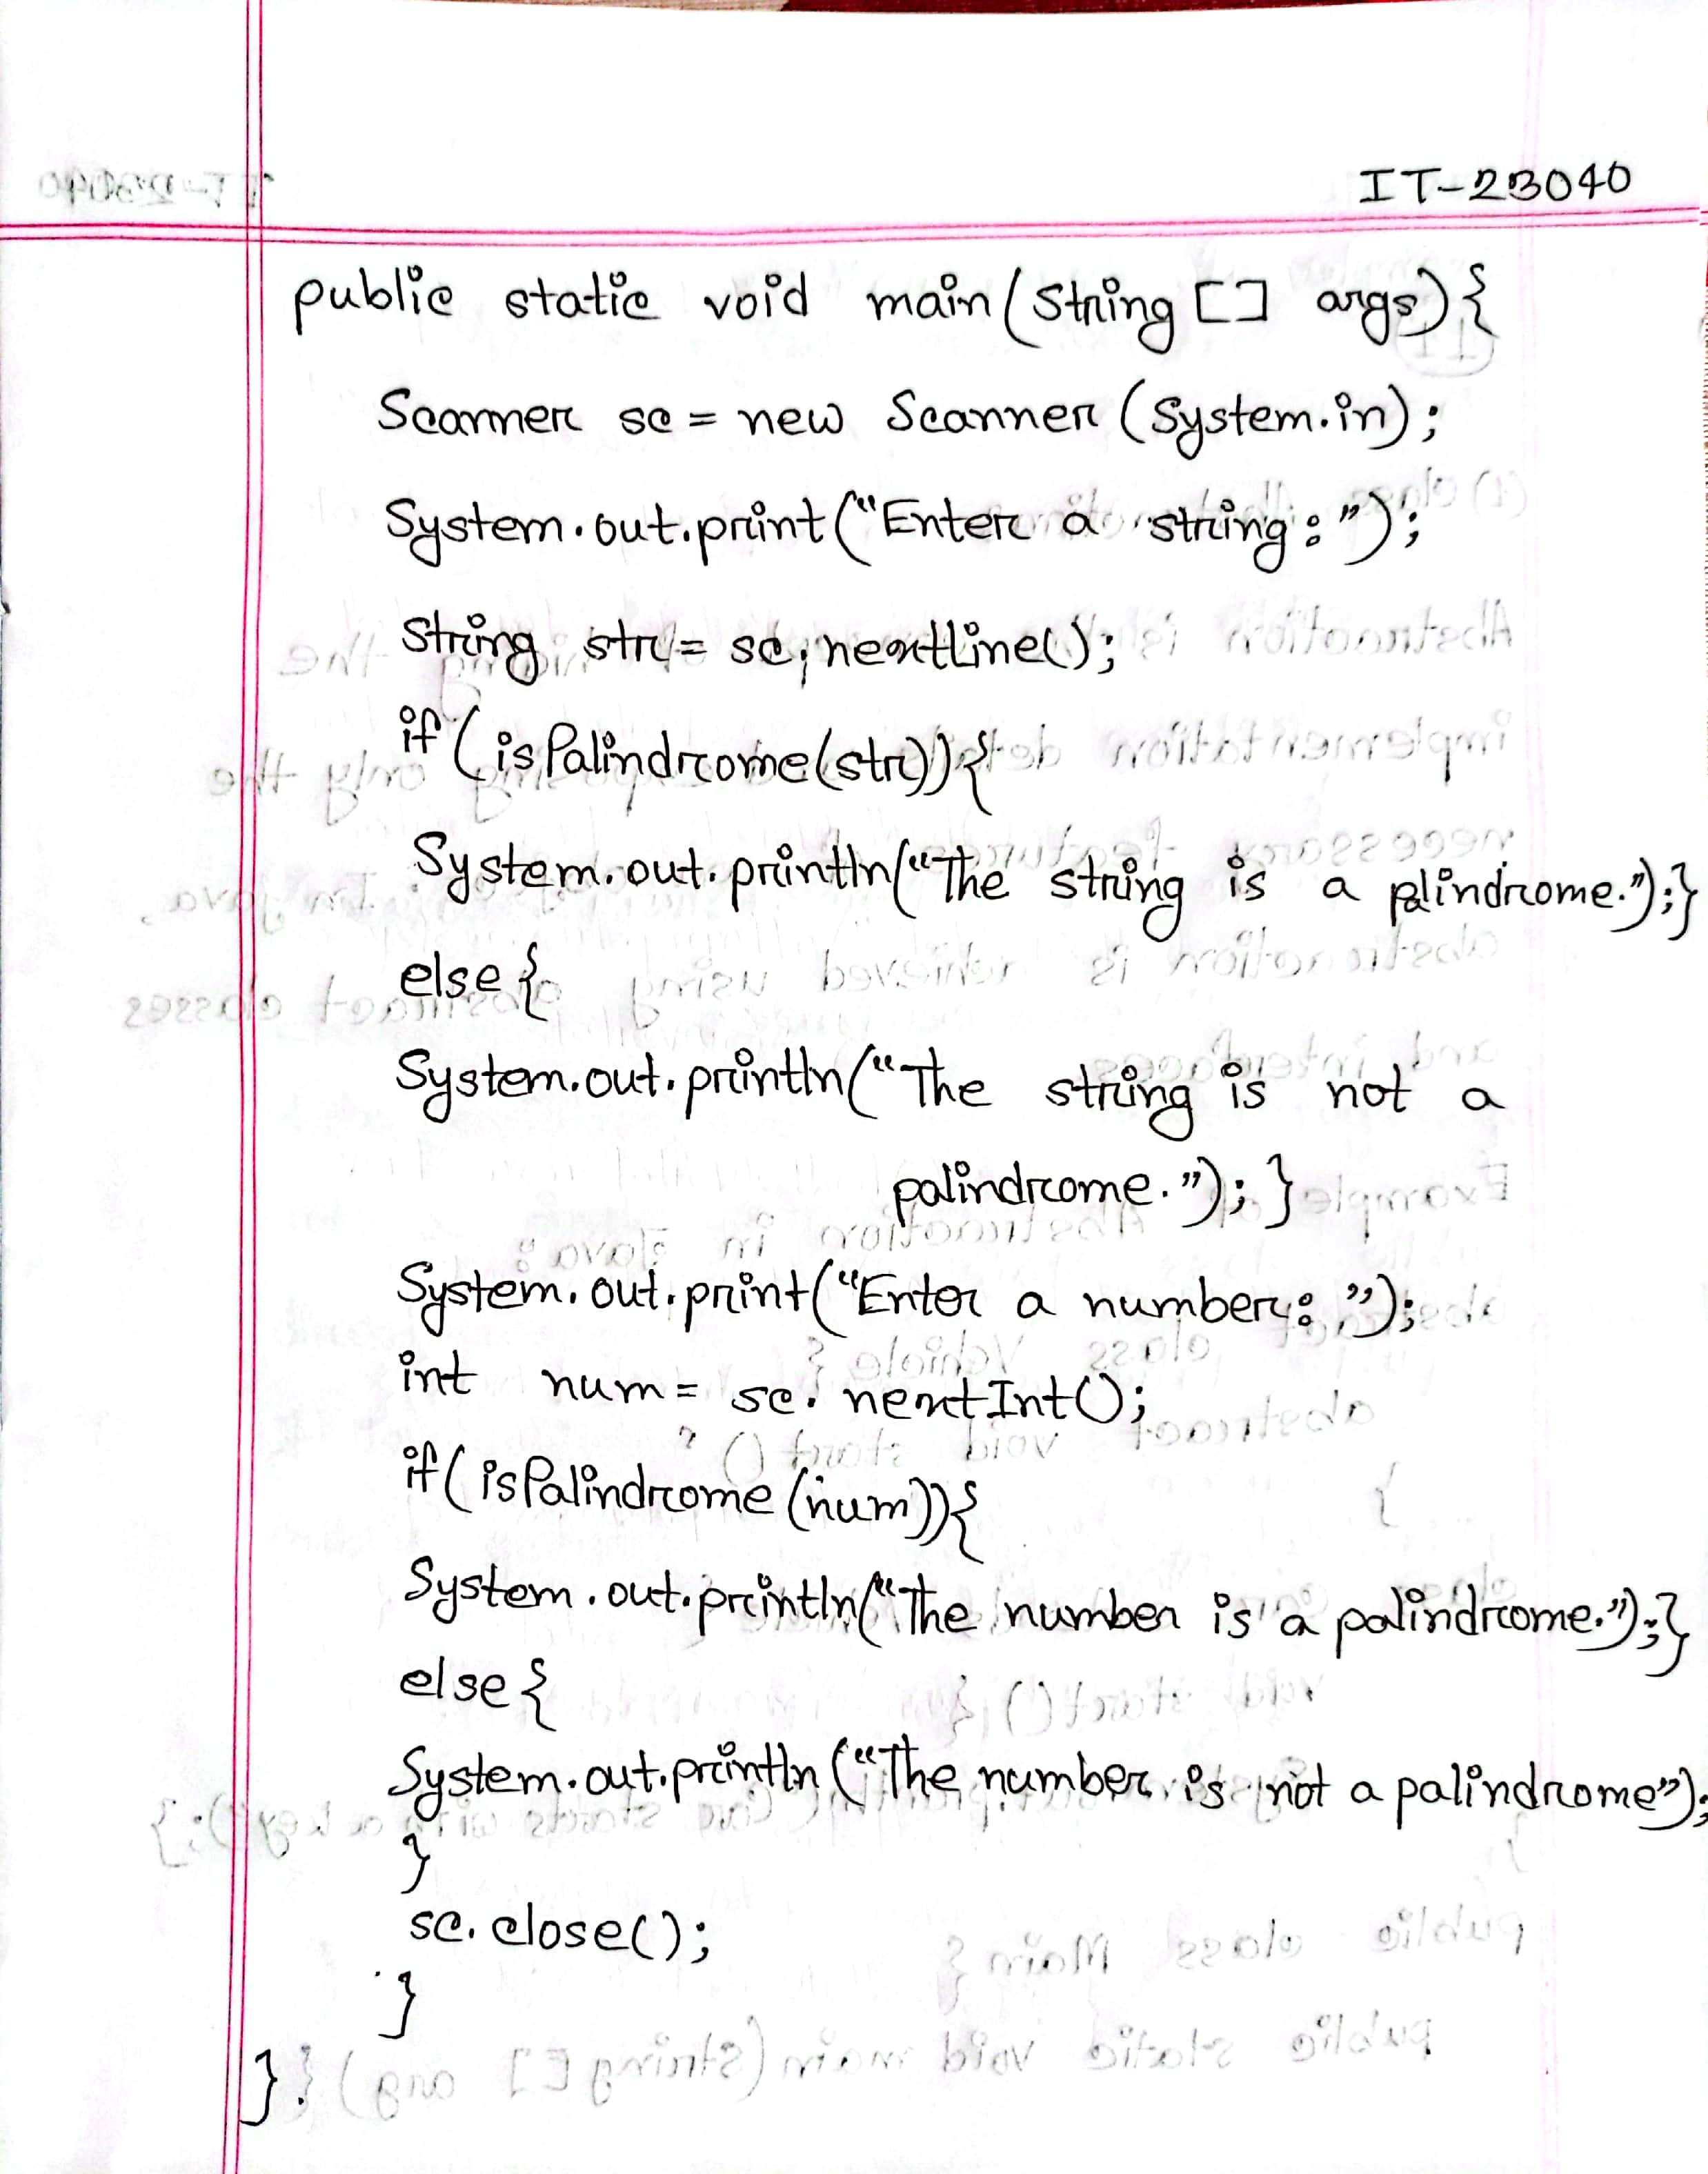 IT-23040
public static void main(String [] args){
Scanner sc = new Scanner (System.in);
System.out.print("Enter a string:");
String str = sc.nextline();
if (isPalindrome(str)){
System.out.println("The string is a palindrome.");}
else{
System.out.println("The string is not a
palindrome.");}
System.out.print("Enter a number: ");
int num = sc.nextInt();
if(isPalindrome (num)){
System.out.println("The number is a palindrome.");}
else{
System.out.println("The number is not a palindrome");
}
sc.close();
}
}